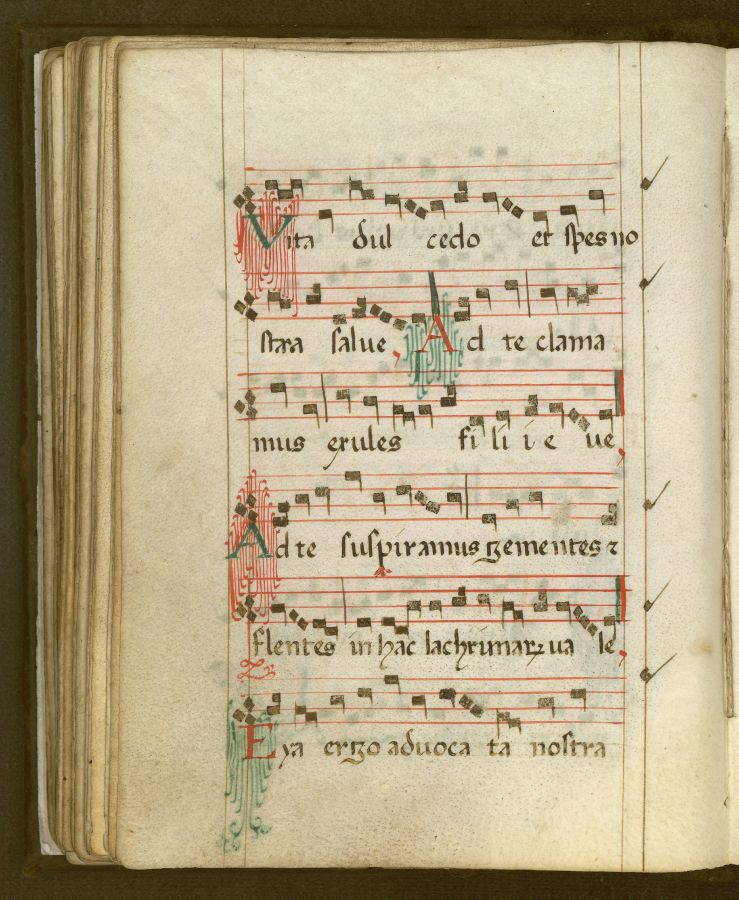 Vita dul cedo et spes no
stra salue, Ad te clama
mus exules fi li i e ue,
Ad te suspiramus gementes ⁊
flentes in hac lachrimaꝝ ua le,
Eya ergo aduoca ta nostra